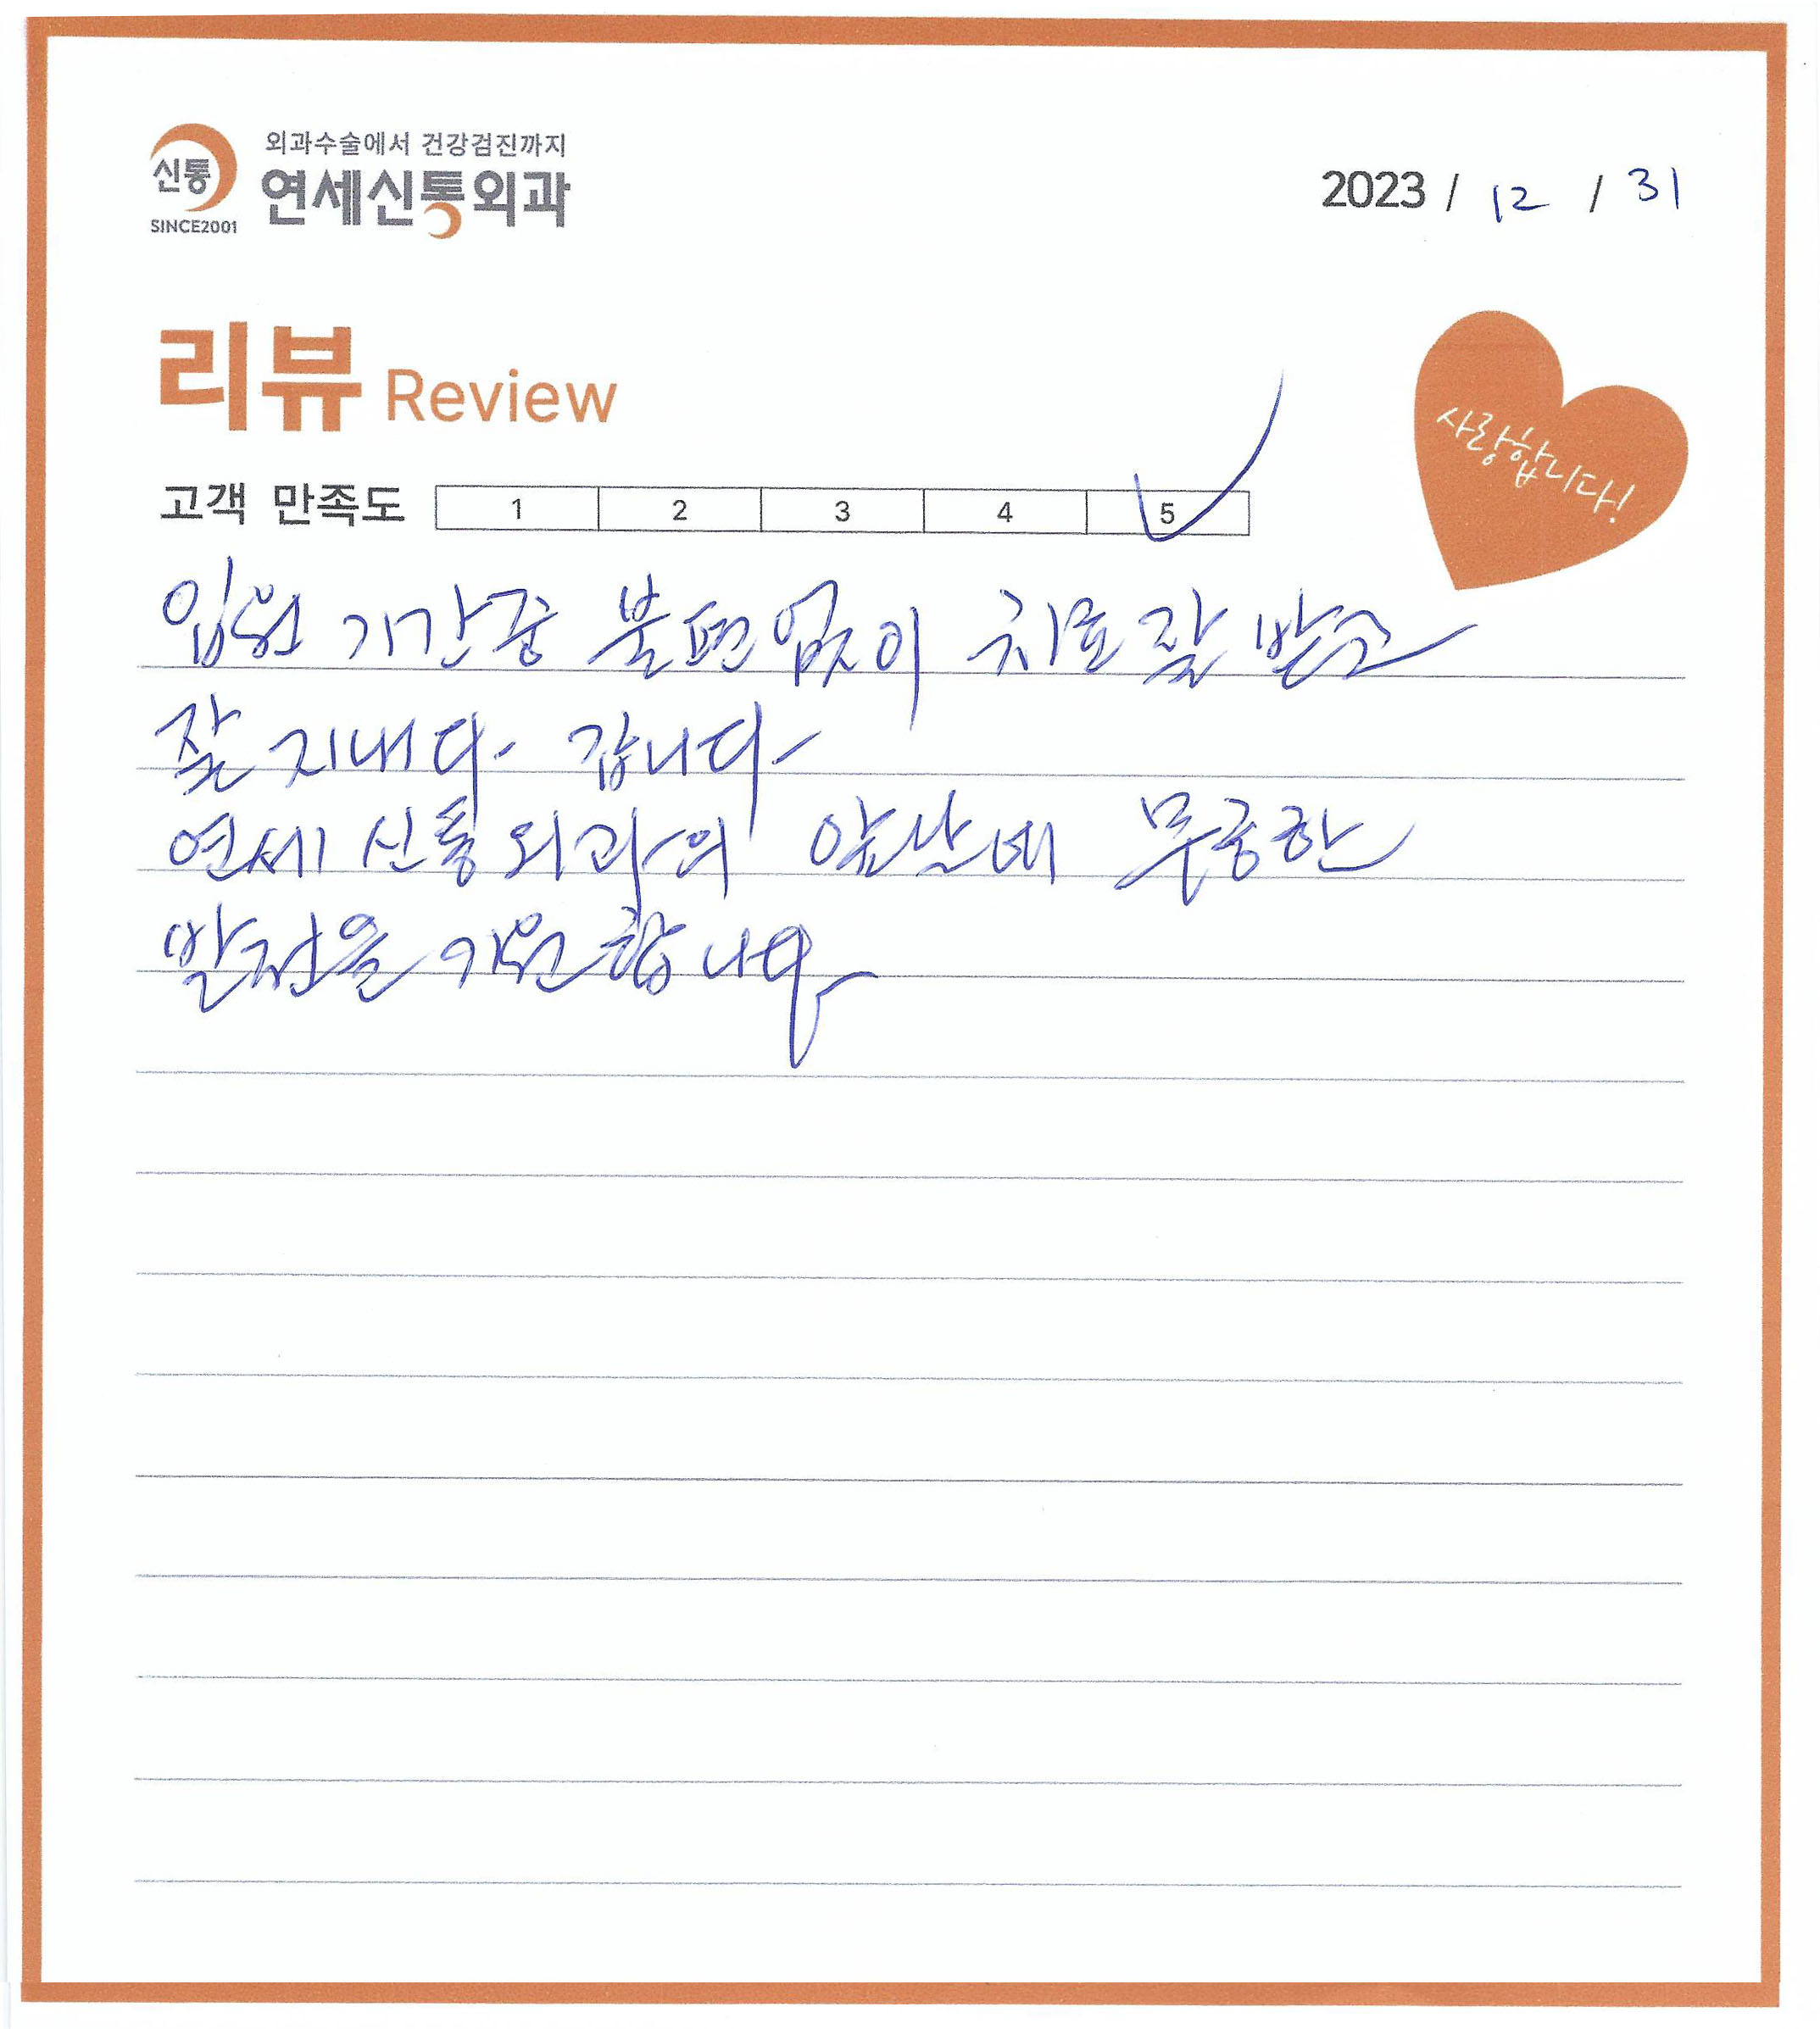 외과수술에서 건강검진까지
신통
연세신통외과
SINCE2001
2023 / 12 / 31
리뷰 Review
사랑합니다!
고객 만족도 1 2 3 4 5
입원 기간중 불편없이 치료 잘 받고
잘 지내다 갑니다
연세 신통외과의 앞날에 무궁한
발전을 기원합니다